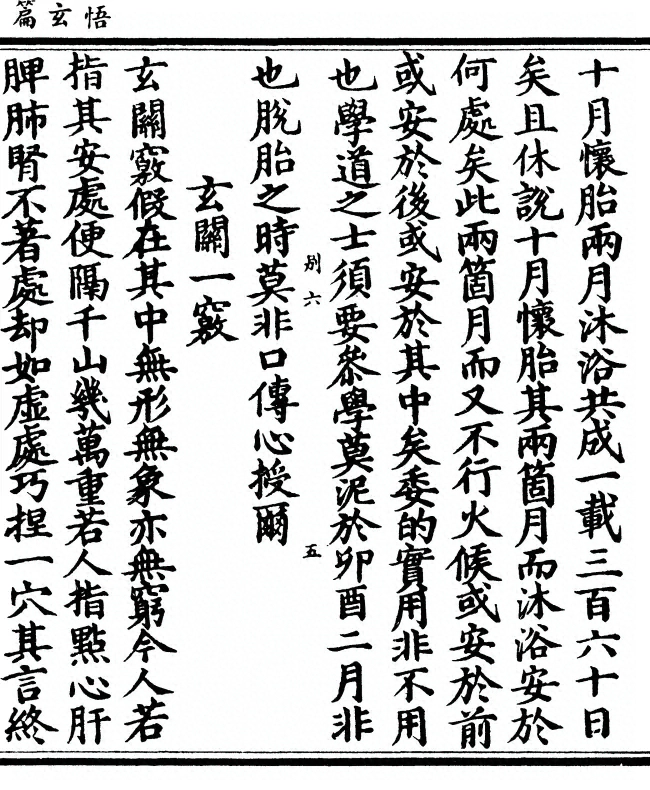 悟玄篇
十月懷胎兩月沐浴共成一載三百六十日
矣且休說十月懷胎其兩箇月而沐浴安於
何處矣此兩箇月而又不行火候或安於前
或安於後或安於其中矣委的實用非不用
也學道之士須要叅學莫泥於卯酉二月非
别六
五
也脫胎之時莫非口傳心授爾
玄關一竅
玄關竅假在其中無形無象亦無窮今人若
指其安處便隔千山幾萬重若人指點心肝
脾肺腎不著處却如虛處巧揑一穴其言終